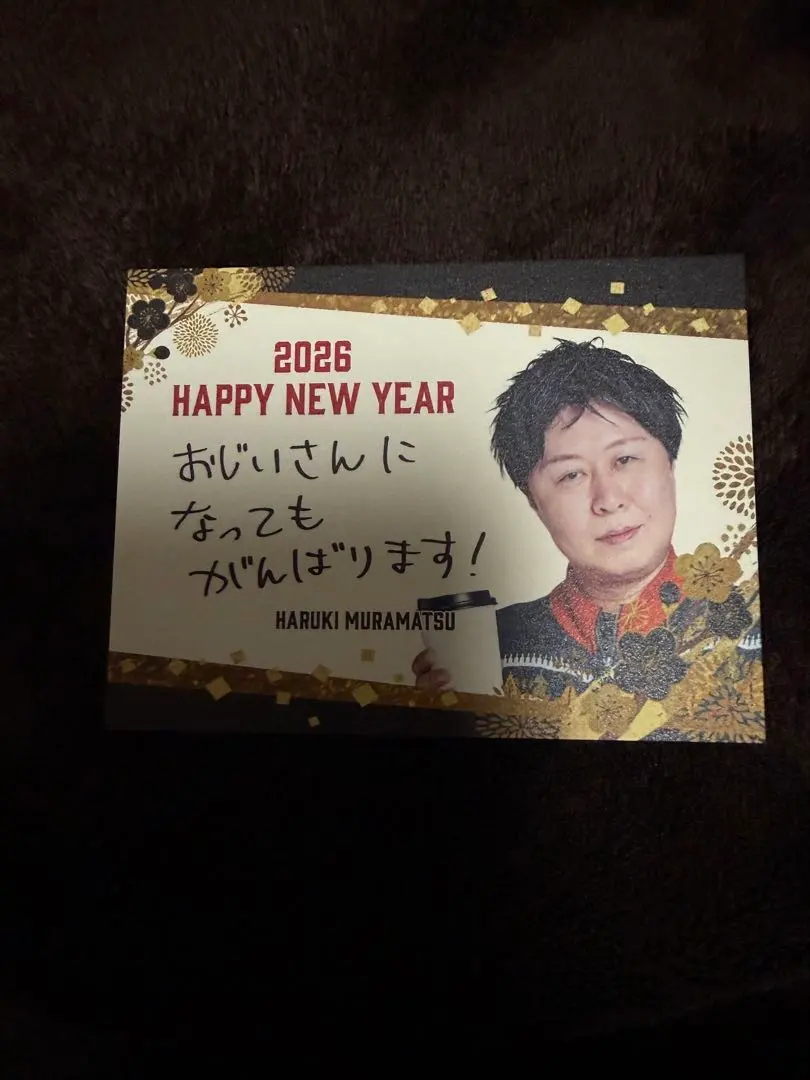 2026
HAPPY NEW YEAR
おじいさんに
なっても
がんばります!
HARUKI MURAMATSU